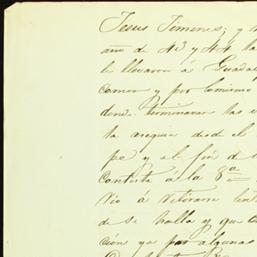 Jesus Jimenes, y
ano de 43 y 44 ha
le llevaron á Guadal
comer y por camino
donde terminaron las
la acequia desde el
po y al fin de
Contesta á la 8a
Vio á Victoriano
de se halla y que
ción ya por algunas